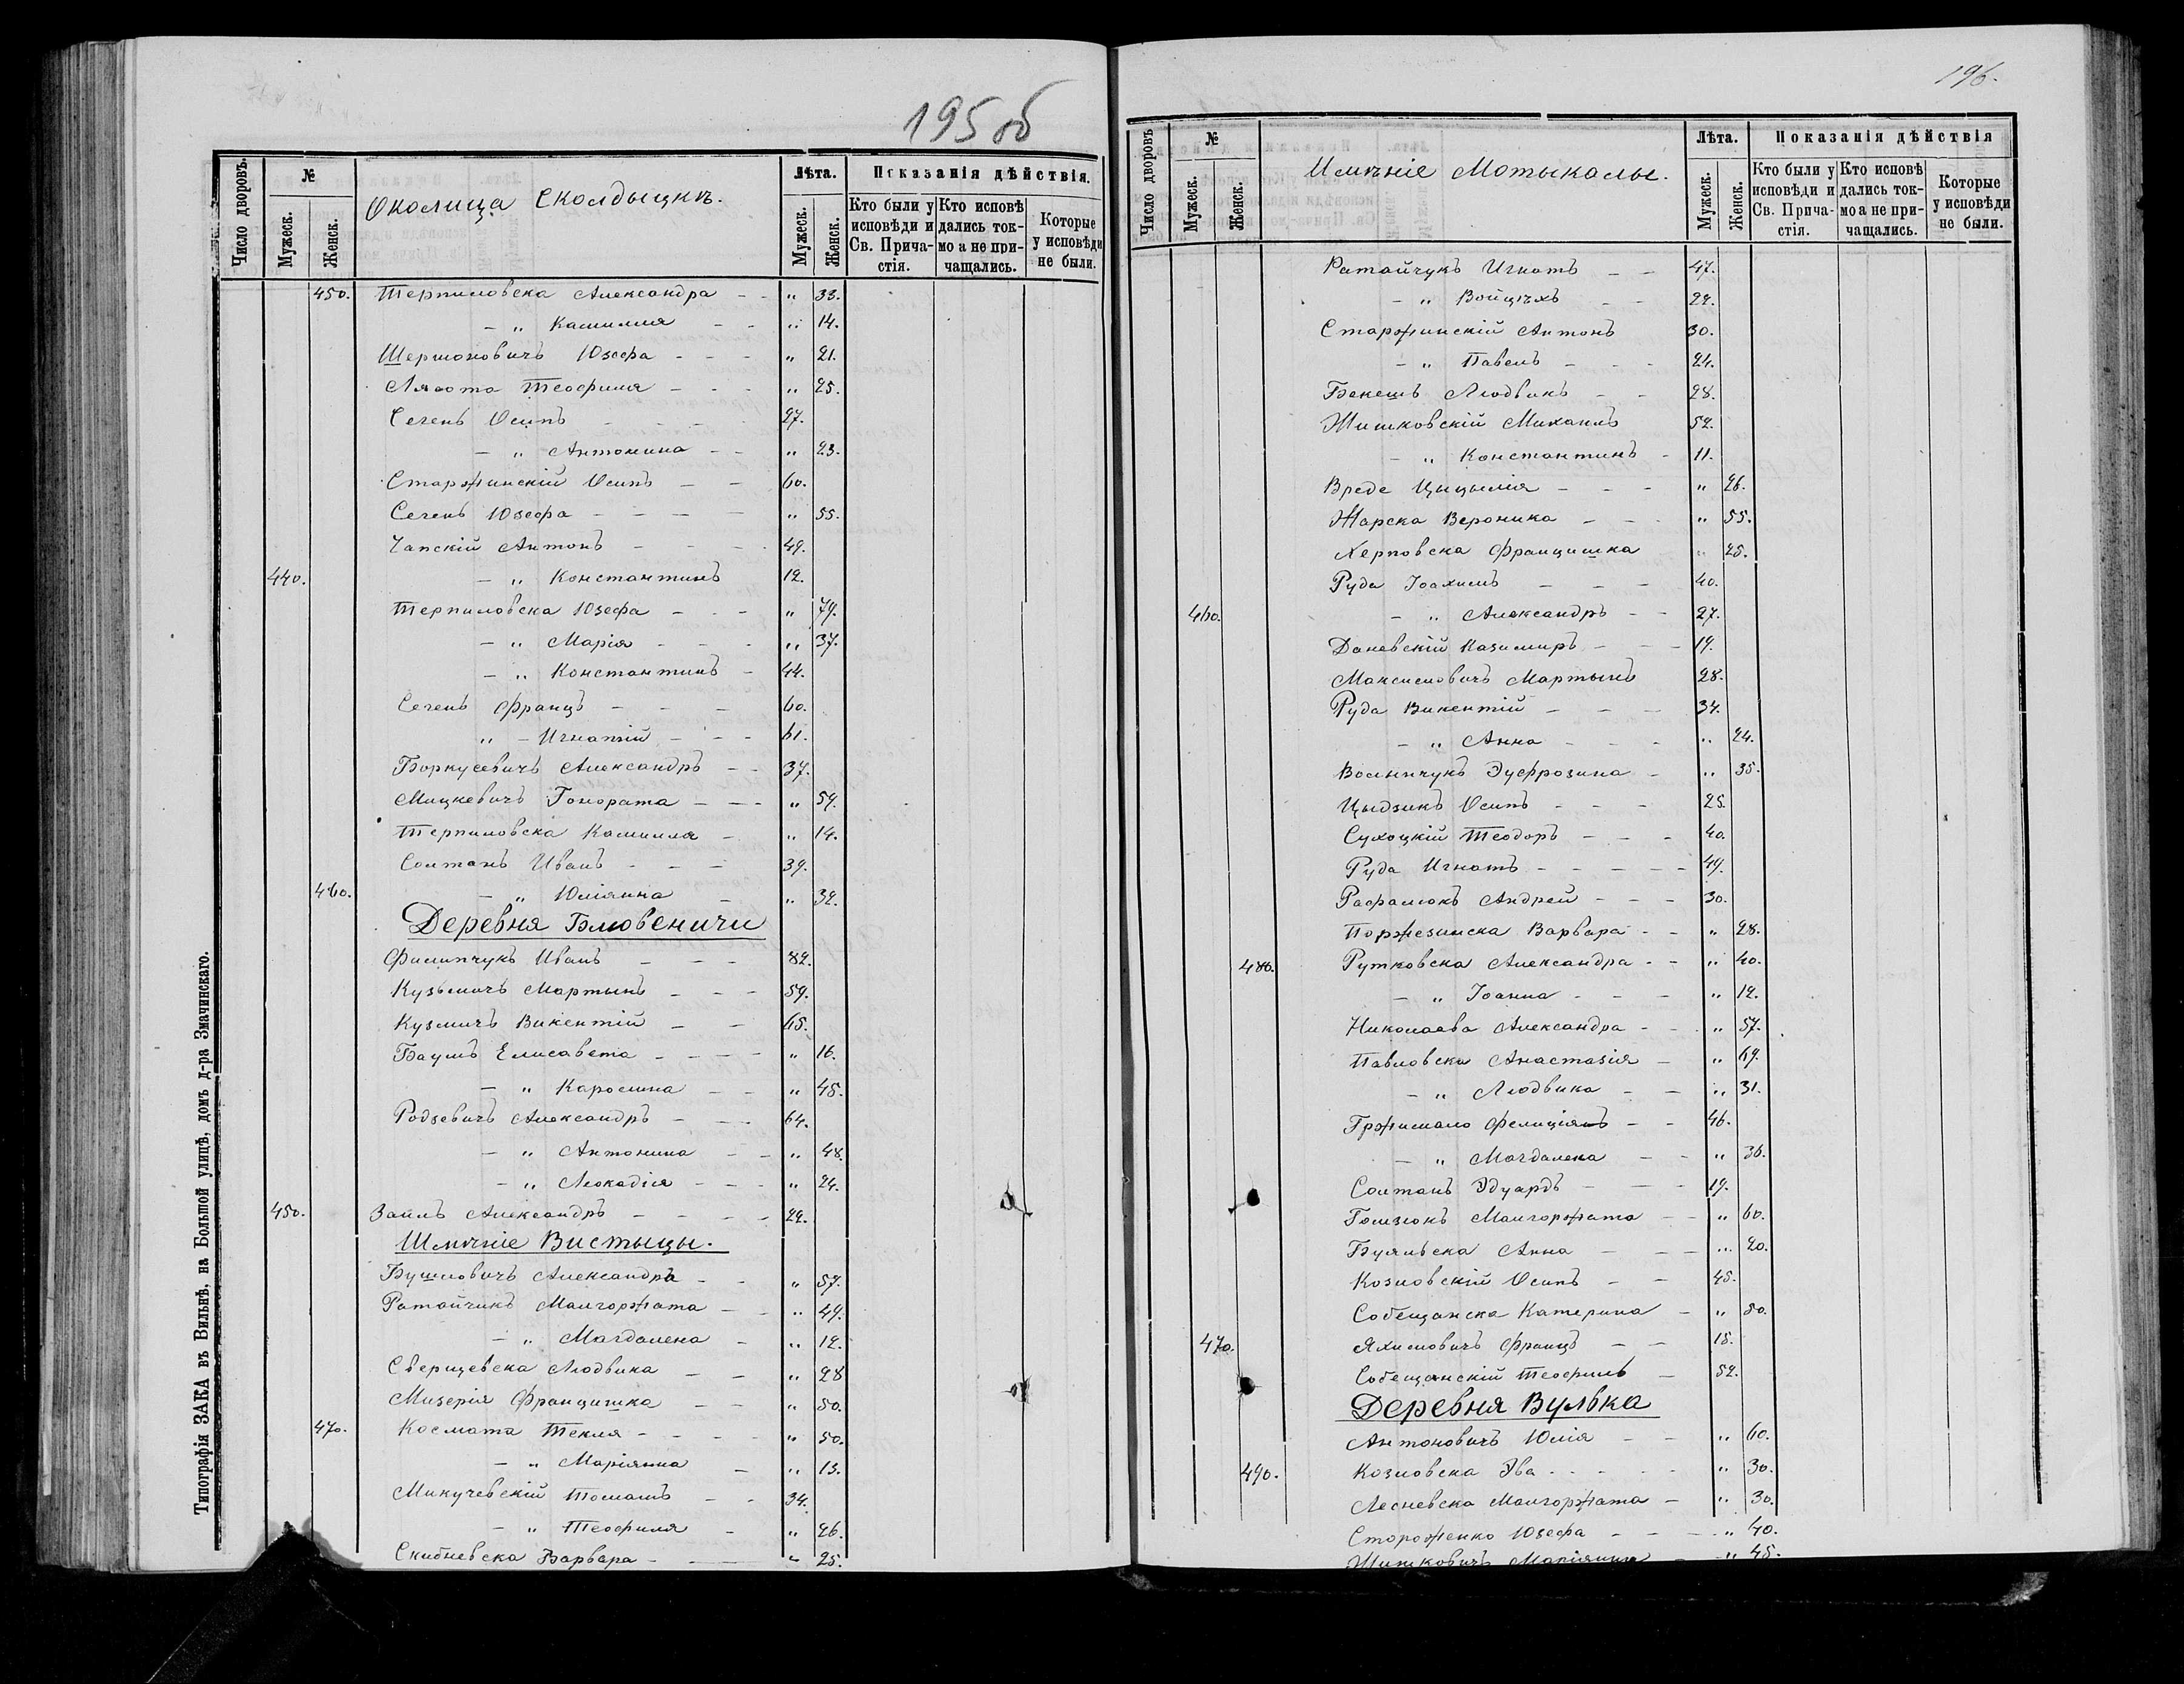 195 об
Число дворовъ.
№
Мужеск.
Женск.
Околица Сколдыцкъ.
Лѣта.
Мужеск.
Женск.
Показанія дѣйствія.
Кто были у исповѣди и Св. Прича-стія.
Кто исповѣ дались ток-мо а не при-чащались.
Которые у исповѣди не были.
450. Терпиловска Александра - - „ 33.
- „ Камилия - - „ 14.
Шермоновичъ Юзефа - - - „ 21.
Лясота Теофиля - - - „ 25.
Сечень Осипъ - - - - 27.
- „ Антонина - - „ 23.
Старжинскій Осипъ - - 60.
Сечень Юзефа - - - - „ 55.
Чапскій Антонъ - - - 49.
440. - „ Константинъ 12.
Терпиловска Юзефа - - - „ 79.
- „ Марія - - - „ 37.
- „ Константинъ - 44.
Сечень Францъ - - - 60.
„ - Игнатій - - - 61.
Боркусевичъ Александръ - - 37.
Мицкевичъ Гонората - - - „ 59.
Терпиловска Камилля - „ 14.
Солтанъ Иванъ - - - 39.
460. - „ Юліянна - „ 32.
Деревня Бловеничи
Филипчукъ Иванъ - - - 82.
Кузьмичъ Мартынъ - - - 59.
Кузмичъ Викентій - - 65.
Баумъ Елисавета - - - - „ 16.
- „ Каролина - - „ 45.
Родзевичъ Александръ - - - 64.
- „ Антонина - - „ 48.
- „ Леокадія - - - „ 24.
450. Заилъ Александръ - - - - 22.
Имѣніе Вистыцы.
Бушловичъ Александра - - „ 57.
Ратайчикъ Малгоржата - - „ 49.
- „ Магдалена - „ 12.
Сверщевска Людвика - - „ 28
Мизерія Францишка - - „ 50.
470. Космата Текля - - - - „ 50.
- „ Маріянна - „ 13.
Микучевскій Томашъ - - 34.
- „ Теофиля - „ 26.
Скибневска Барбара - - - „ 25.
Типографія ЗАКА въ Вильнѣ, на Большой улицѣ, домъ д-ра Змачинскаго.
196.
Число дворовъ
№
Мужеск.
Женск.
Имѣніе Мотыкалы.
Лѣта.
Мужеск.
Женск.
Показанія дѣйствія
Кто были у исповѣди и Св. Прича-стія.
Кто исповѣ дались ток-мо а не при-чащались.
Которые у исповѣди не были.
Ратайчукъ Игнатъ - - 47.
- „ Войцѣхъ - - 22.
Старжинскій Антонъ 30.
- „ Павелъ - - - 24.
Бекешъ Людвикъ - - 28.
Жишковскій Михаилъ 52.
- „ Константинъ - 11.
Вреде Цыцылія - - - „ 26.
Жарска Вероника - - - „ 55.
Херповска Францишка „ 25.
Руда Іоахимъ - - - 40.
460. - „ Александръ - - 27.
Даневскій Казимиръ - - - 19.
Максимовичъ Мартынъ 28.
Руда Викентій - - - 34.
- „ Анна - - - „ 24.
Волынчукъ Эуфрозина - „ 35.
Цыдзикъ Осипъ - - - 25.
Сухоцкій Теодоръ - - - 40.
Руда Игнатъ - - - - - 49.
Рафалюкъ Андрей - - - 30.
Поржезинска Варвара - - „ 28.
480. Рутковска Александра - - „ 40.
- „ Іоанна - - - „ 12.
Николаева Александра - - „ 57.
Павловска Анастазія - „ 69.
- „ Людвика - - „ 31.
Гржимало Фелиціянъ - - 46.
- „ Магдалена - - „ 36.
Солтанъ Эдуардъ - - - 19.
Гомзюкъ Малгоржата - - „ 60.
Буяльска Анна - - - „ 20.
Козловскій Осипъ - - 45.
Собещанска Катерина - „ 50.
470. Яхимовичъ Францъ - - 18.
Собещанскій Теофилъ - 52.
Деревня Вулька
Антоновичъ Юлія - - „ 60.
490. Козловска Эва - - - - - „ 30.
Лесневска Малгоржата - „ 30.
Стороженко Юзефа - - - „ 40.
Маріянна - „ 45.